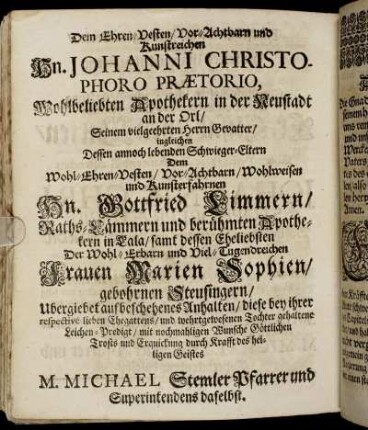 Dem Ehren-Vesten/ Vor-Achtbarn und
Kunstreichen
Hn. JOHANNI CHRISTO-
PHORO PRÆTORIO,
Wohlbeliebten Apothekern in der Neustadt
an der Orl/
Seinem vielgeehrten Herrn Gevatter/
ingleichen
Dessen annoch lebenden Schwieger-Eltern
Dem
Wohl-Ehren-Vesten/ Vor-Achtbarn/ Wohlweisen
und Kunsterfahrnen
Hn. Gottfried Limmern/
Raths-Cämmern und berühmten Apothe-
kern in Cala/ samt dessen Eheliebsten
Der Wohl-Erbarn und Viel-Tugendreichen
Frauen Marien Sophien/
gebohrnen Steusingern/
Ubergiebet auf beschehenes Anhalten/ diese bey ihrer
respective lieben Ehegattens/ und wehrtgewesenen Tochter gehaltene
Leichen-Predigt/ mit nochmahligen Wunsche Göttlichen
Trosts und Erquickung durch Krafft des hei-
ligen Geistes
M. MICHAEL Stemler Pfarrer und
Superintendens daselbst.